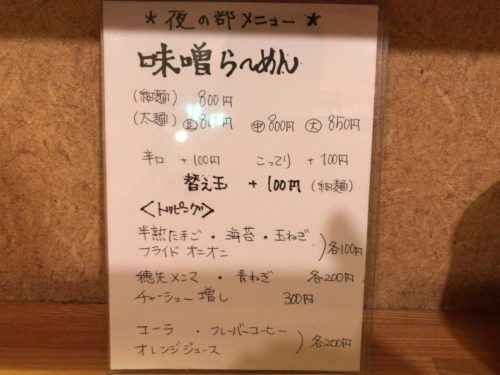 *夜の部メニュー*
味噌らーめん
(細麺) 800円
(太麺) 並 800円 中 800円 大 850円
辛口 +100円 こってり +100円
替え玉 +100円 (細麺)
<トッピング>
半熟たまご・海苔・玉ねぎ
フライドオニオン )各100円
穂先メンマ・青ねぎ 各200円
チャーシュー増し 300円
コーラ・フレーバーコーヒー
オレンジジュース )各200円